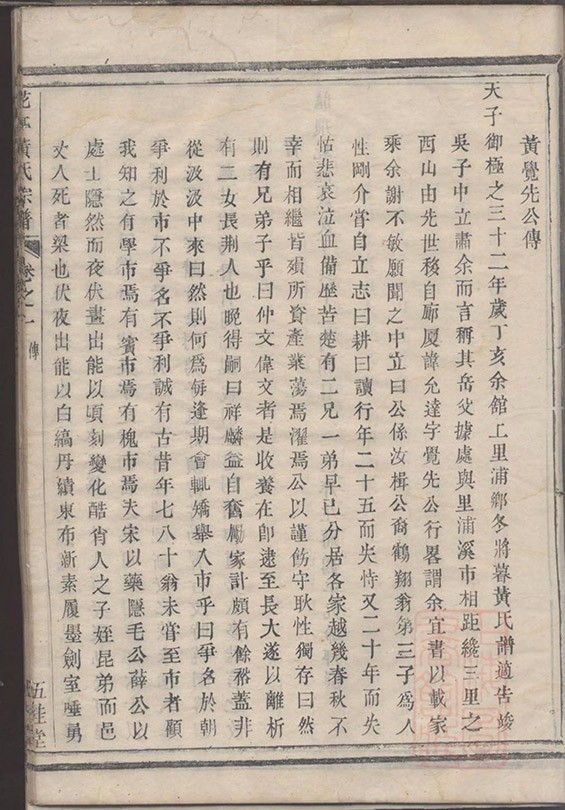 黃覺先公傳
天子御極之三十二年歲丁亥余館上里浦鄉冬將暮黃氏譜適告竣
吳子中立肅余而言稱其岳父據處與里浦溪市相距纔三里之
西山由先世移自廊厦諱允達字覺先公行畧謂余宜書以載家
乘余謝不敏願聞之中立曰公係汝楫公裔鶴翔翁第三子為人
性剛介嘗自立志曰耕曰讀行年二十五而失恃又二十年而失
怙悲哀泣血備歷苦楚有二兄一弟早已分居各家越幾春秋不
幸而相繼皆殞所資產業蕩焉濯焉公以謹飭守耿性獨存曰然
則有兄弟子乎曰仲文偉文者是收養在卽逮至長大遂以離析
有二女長荆人也晚得嗣曰祥麟益自奮勵家計頗有餘裕蓋非
從汲汲中來曰然則何為每逢期會輒矯舉入市乎曰爭名於朝
爭利於市不爭名不爭利誠有古昔年七八十翁未嘗至市者顧
我知之有學市焉有賓市焉有槐市焉夫宋以藥隱毛公薛公以
處士隱然而夜伏晝出能以頃刻變化酷肖人之子姪昆弟而邑
丈人死者梁也伏夜出能以白縞丹績東布新素履墨劍室唾男
花亭黃氏宗譜
卷之一
傳
五桂堂